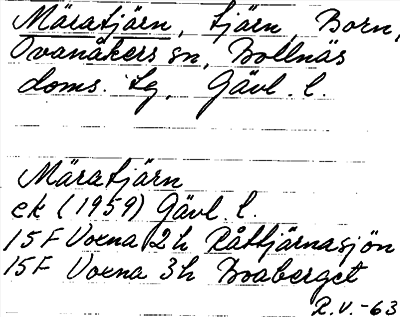 Märatjärn, tjärn, Born,
Ovanåkers sn, Bollnäs
doms. tg, Gävl. l.
Märatjärn
ek (1959) Gävl. l.
15F Voxna 2h Råttjärnasjön
15F Voxna 3h Boaberget
R.V.-63